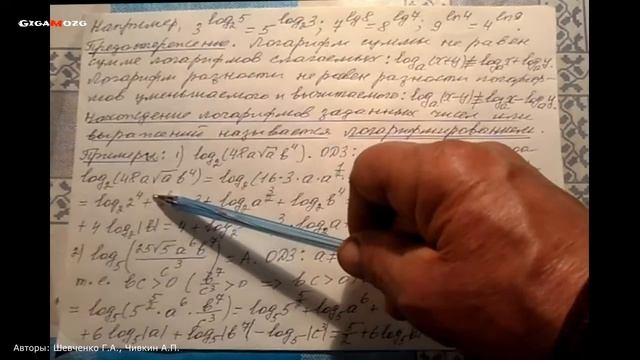 GIGAMOZG
Например, 3^log₂5 = 5^log₂3; 4^lg8 = 8^lg4; 9^ln4 = 4^ln9
Предостережение. Логарифм суммы не равен
сумме логарифмов слагаемых: logₐ(x+y) ≠ logₐx + logₐy.
Логарифм разности не равен разности логариф-
мов уменьшаемого и вычитаемого: logₐ(x-y) ≠ logₐx - logₐy.
Нахождение логарифмов заданных чисел или
выражений называется логарифмированием.
Примеры: 1) log₂(48a√a b⁴). ОДЗ:
log₂(48a√a b⁴) = log₂(16·3·a·a^½
= log₂2⁴ + log₂a^(3/2) + log₂b⁴
+ 4log₂|b| = 4 + log₂ log₂a
2) log₅(25√5 a⁶b⁷/c³) = A. ОДЗ: a≠
т.е. bc>0 (b⁷/c³>0 => bc>0
= log₅(5^(5/2)·a⁶·b⁷/c³) = log₅5^(5/2) + log₅a⁶ +
+ 6log₅|a| + log₅|b⁷| - log₅|c³| = 5/2 + 6log₅
Авторы: Шевченко Г.А., Чивкин А.П.